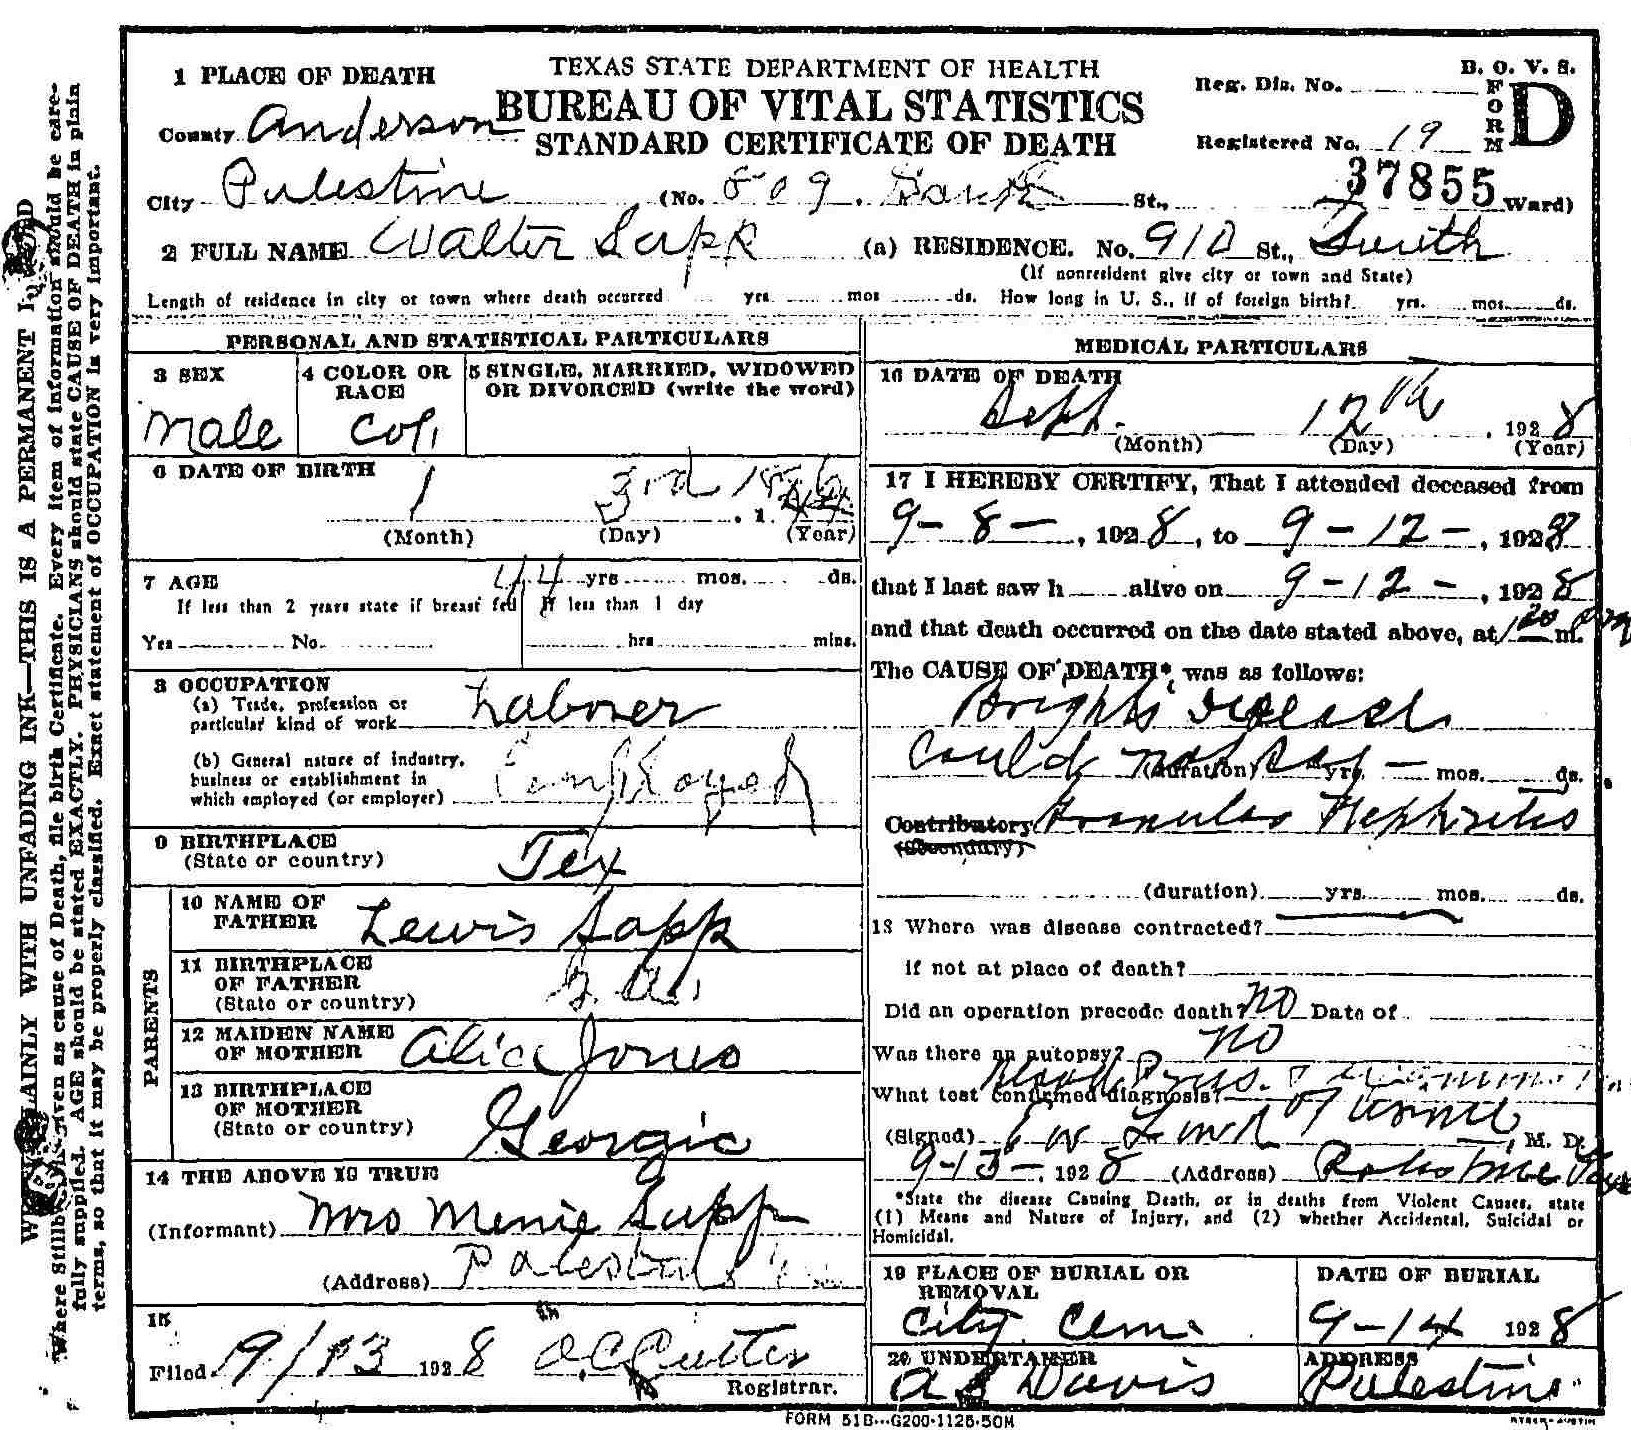 TEXAS STATE DEPARTMENT OF HEALTH
BUREAU OF VITAL STATISTICS
STANDARD CERTIFICATE OF DEATH
B. O. V. S.
FORM D
Reg. Dis. No.
Registered No. 19
37855
1 PLACE OF DEATH
County Anderson
City Palestine (No. 809 St., Ward)
2 FULL NAME Walter Sapp (a) RESIDENCE. No. 910 St., South
(If nonresident give city or town and State)
Length of residence in city or town where death occurred yrs. mos ds. How long in U. S., if of foreign birth? yrs. mos. ds.
PERSONAL AND STATISTICAL PARTICULARS
3 SEX
Male
4 COLOR OR RACE
Col.
5 SINGLE, MARRIED, WIDOWED
OR DIVORCED (write the word)
6 DATE OF BIRTH
1 3rd
(Month) (Day) (Year)
7 AGE 44 yrs mos. ds.
If less than 2 years state if breast fed If less than 1 day
Yes No. hrs mins.
8 OCCUPATION
(a) Trade, profession or
particular kind of work Laborer
(b) General nature of industry,
business or establishment in
which employed (or employer)
9 BIRTHPLACE
(State or country) Tex
PARENTS
10 NAME OF
FATHER Lewis Sapp
11 BIRTHPLACE
OF FATHER
(State or country) Ga.
12 MAIDEN NAME
OF MOTHER Alice Jones
13 BIRTHPLACE
OF MOTHER
(State or country) Georgia
14 THE ABOVE IS TRUE
(Informant) Mrs Menie Sapp
(Address) Palestine
15
Filed 9/13 1928
Registrar.
MEDICAL PARTICULARS
16 DATE OF DEATH
Sept. 12th, 1928
(Month) (Day) (Year)
17 I HEREBY CERTIFY, That I attended deceased from
9-8-, 1928, to 9-12-, 1928
that I last saw h alive on 9-12-, 1928
and that death occurred on the date stated above, at 1 20 m.
The CAUSE OF DEATH* was as follows:
Brights disease
Could not say
(duration) yrs. mos. ds.
Contributory Granular Nephritis
(Secondary)
(duration) yrs. mos. ds.
18 Where was disease contracted?
if not at place of death?
Did an operation precede death? No Date of
Was there an autopsy? No
What test confirmed diagnosis? Blood
(Signed) , M. D.
9-13-, 1928 (Address) Palestine
*State the disease Causing Death, or in deaths from Violent Causes, state
(1) Means and Nature of Injury, and (2) whether Accidental, Suicidal or
Homicidal.
19 PLACE OF BURIAL OR
REMOVAL
City Cem.
DATE OF BURIAL
9-14 1928
20 UNDERTAKER
Davis
ADDRESS
Palestine
FORM 51B---G200-1125-50M
PLAINLY WITH UNFADING INK—THIS IS A PERMANENT
Where Stillbirth is given as cause of Death, file birth Certificate. Every item of information should be care-
fully supplied. AGE should be stated EXACTLY. PHYSICIANS should state CAUSE OF DEATH in plain
terms, so that it may be properly classified. Exact statement of OCCUPATION is very important.